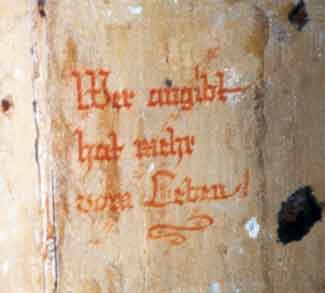 Wer angibt
hat mehr
vom Leben!